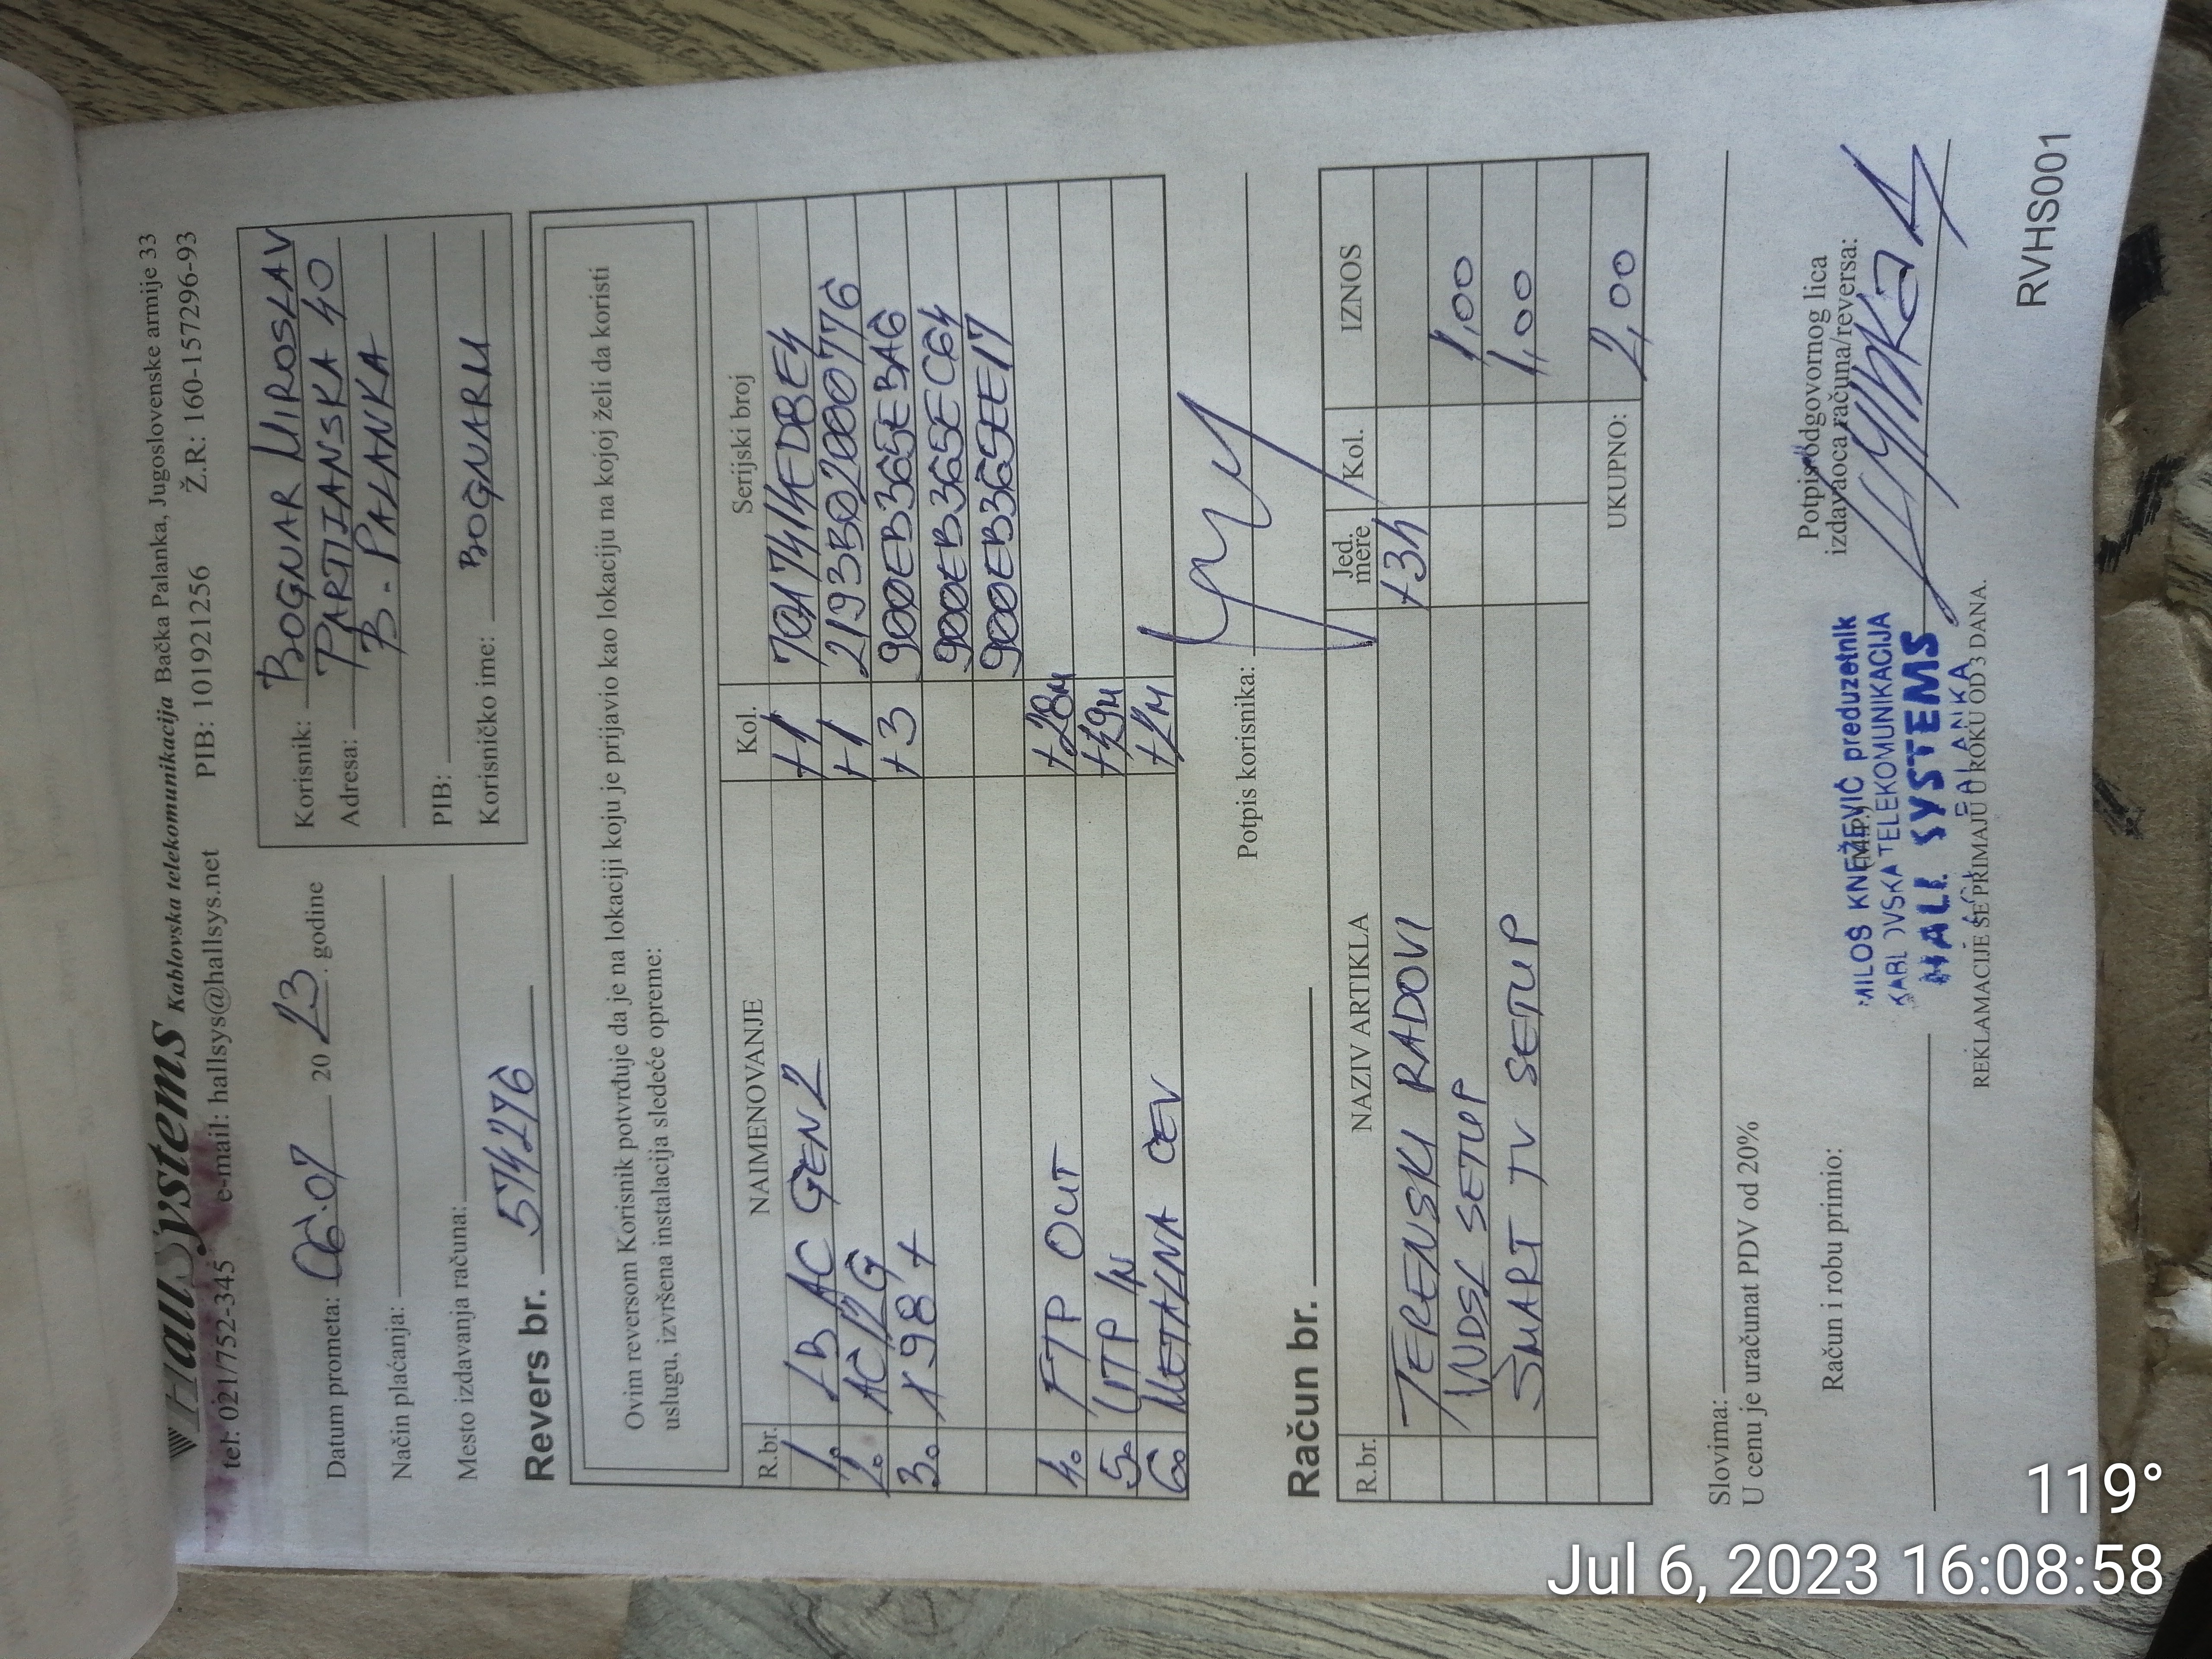 HallSystems Kablovska telekomunikacija Bačka Palanka, Jugoslovenske armije 33
tel: 021/752-345 e-mail: hallsys@hallsys.net PIB: 101921256 Ž.R: 160-1572296-93
Datum prometa: 06.07 20 23. godine
Način plaćanja:
Mesto izdavanja računa:
Korisnik: BOGNAR MIROSLAV
Adresa: PARTIANSKA 40
B. PALANKA
PIB:
Korisničko ime: BOGNARM
Revers br. 5742276
Ovim reversom Korisnik potvrđuje da je na lokaciji koju je prijavio kao lokaciju na kojoj želi da koristi
uslugu, izvršena instalacija sledeće opreme:
R.br. NAIMENOVANJE Kol. Serijski broj
1. LB AC GEN2 +1 70A741EDBE4
2. AC12G +1 2193B02000776
3. X98+ +3 900EB365EBA6
900EB365EC64
900EB365EE17
4. FTP OUT +28M
5. UTP IN
6. METALNA CEV +2M
Potpis korisnika:
Račun br.
R.br. NAZIV ARTIKLA Jed. mere Kol. IZNOS
TERENSKI RADOVI +3h
VDSL SETUP 1,00
SMART TV SETUP 1,00
UKUPNO: 2,00
Slovima:
U cenu je uračunat PDV od 20%
Račun i robu primio:
Potpis odgovornog lica
izdavaoca računa/reversa:
MILOŠ KNEŽEVIĆ preduzetnik
KABLOVSKA TELEKOMUNIKACIJA
HALL SYSTEMS
PALANKA
REKLAMACIJE SE PRIMAJU U ROKU OD 3 DANA.
RVHS001
119°
Jul 6, 2023 16:08:58